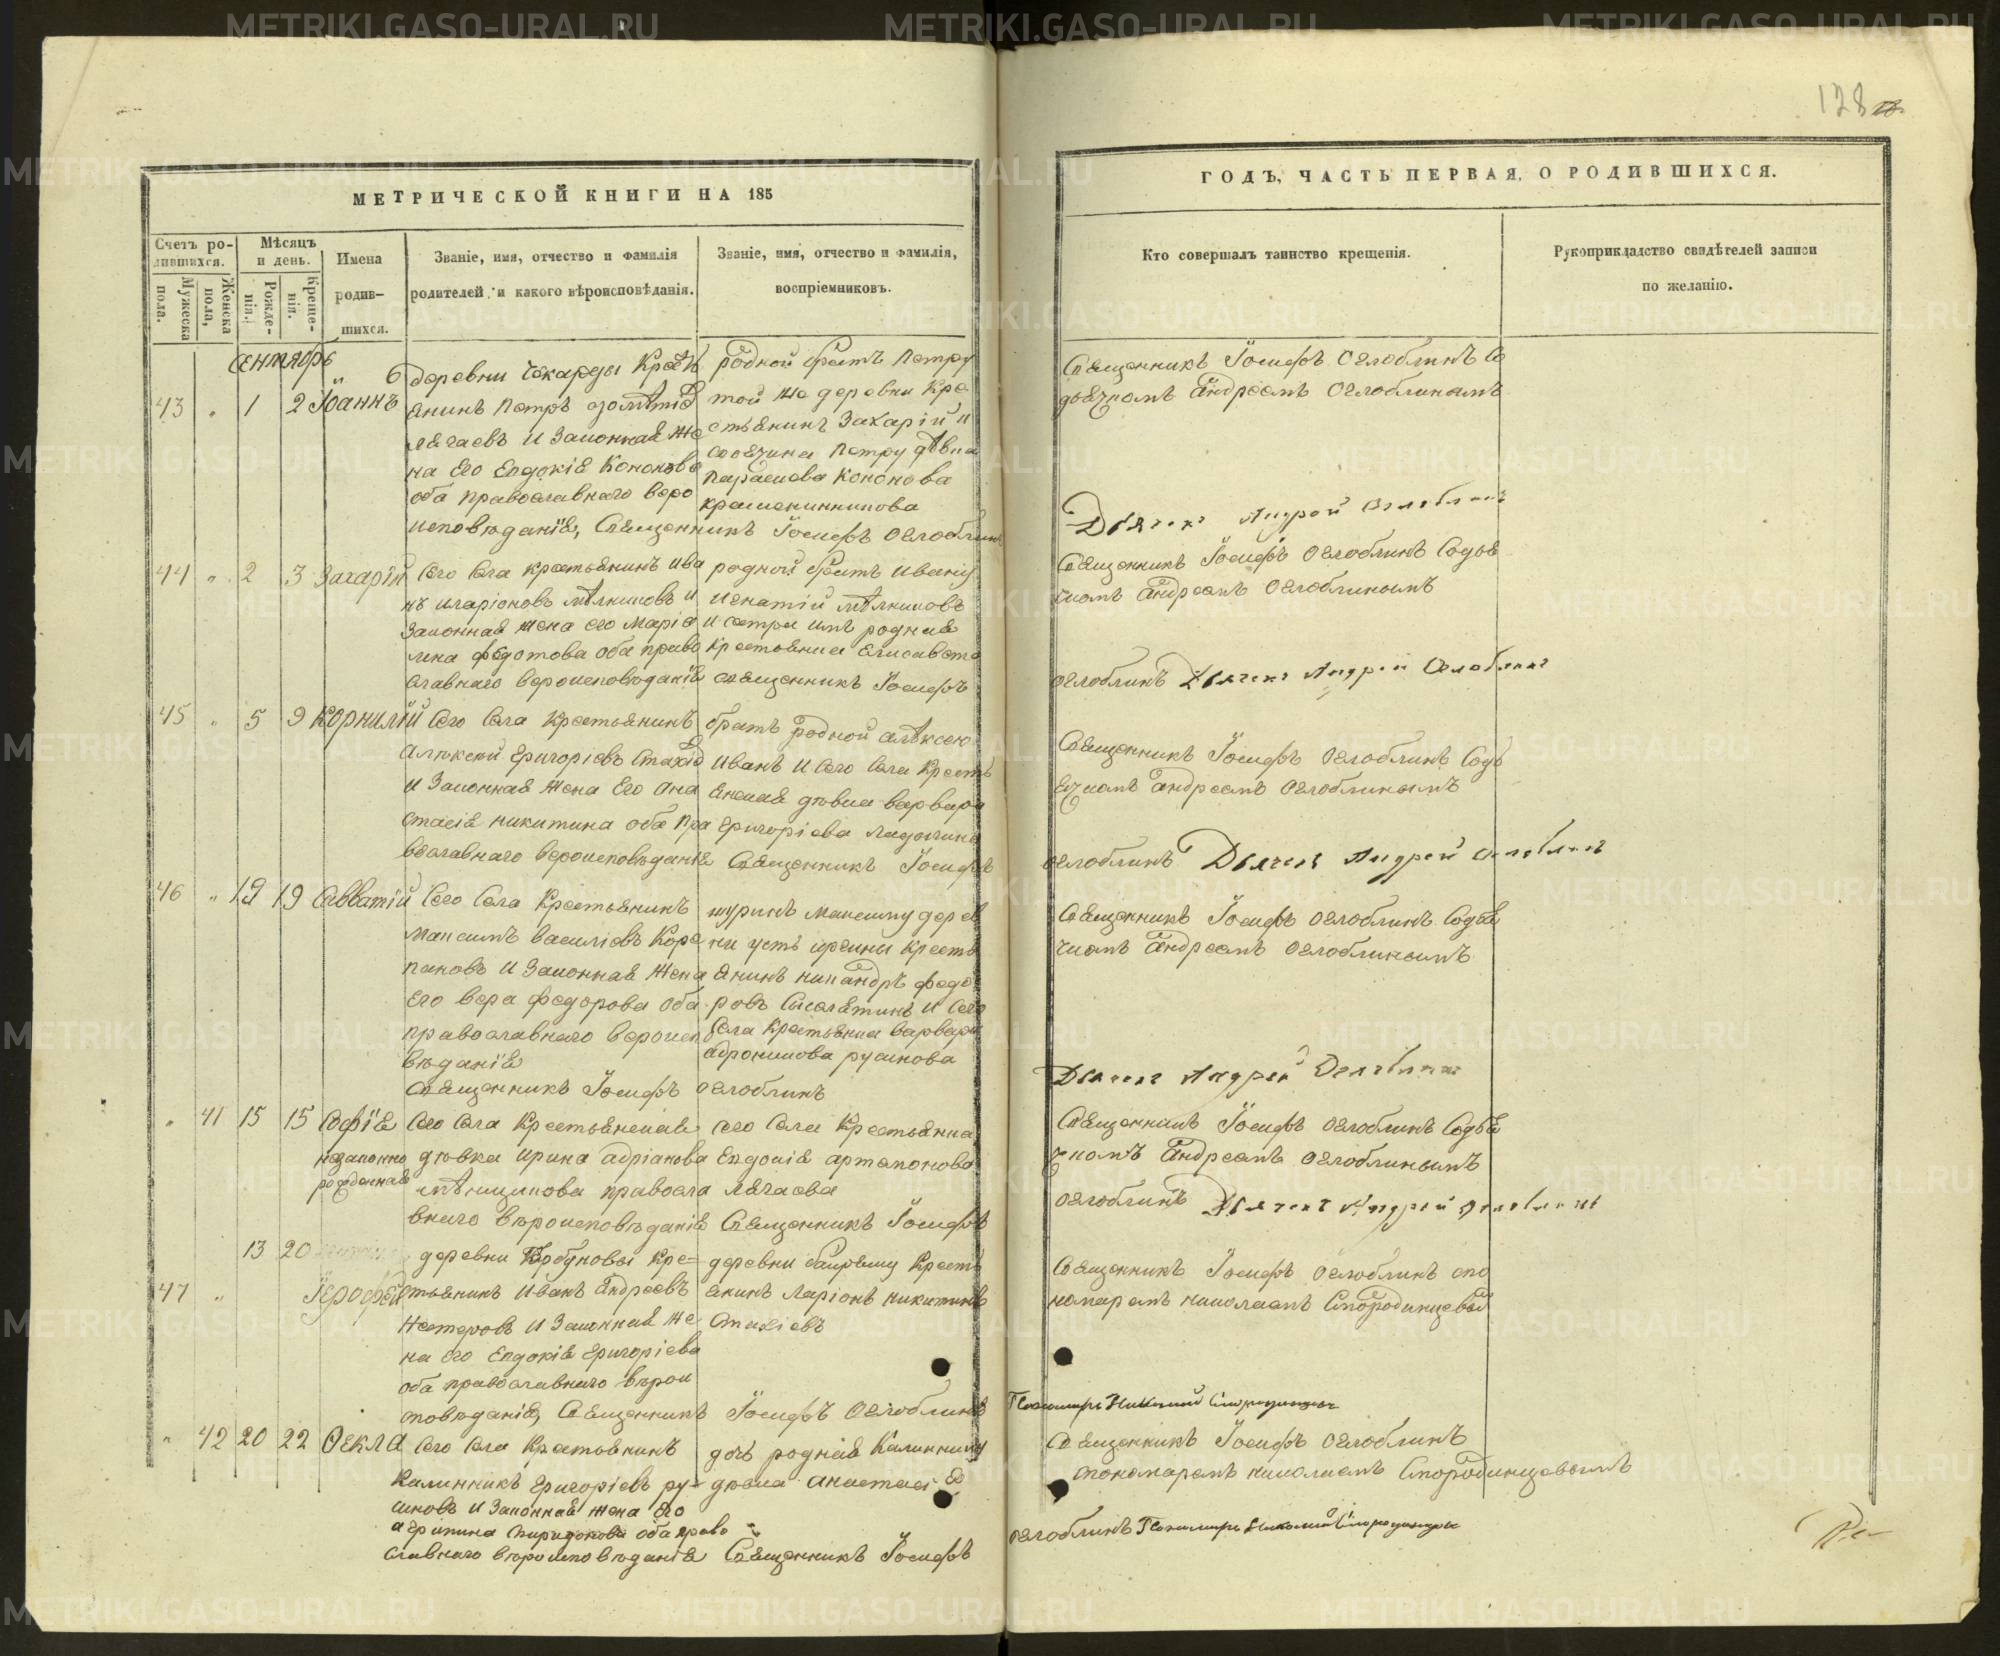 128
МЕТРИЧЕСКОЙ КНИГИ НА 185
ГОДЪ, ЧАСТЬ ПЕРВАЯ, О РОДИВШИХСЯ.
Счетъ ро-
дившихся.
Мужеска пола.
Женска пола,
Мѣсяцъ
и день.
Рожде-
нія.
Креще-
нія.
Имена
родив-
шихся.
Званіе, имя, отчество и фамилія
родителей и какого вѣроисповѣданія.
Званіе, имя, отчество и фамилія,
воспріемниковъ.
Кто совершалъ таинство крещенія.
Рукоприкладство свидѣтелей записи
по желанію.
Сентябрь
43 " 1 2 Іоаннъ
деревни Чекарды Кресть
янинъ Петръ
и законная же
на его Евдокія Кононова
оба православнаго веро
исповѣданія, Священникъ Іосифъ Оглоблинъ
родной братъ Петру
той же деревни Кре
стьянинъ Захарій и
своячина Петру дѣвица
Кононова
Священникъ Іосифъ Оглоблинъ Съ
дьячкомъ Андреемъ Оглоблинымъ
Дьячекъ Андрей Оглоблинъ
44 " 2 3 Захарій
Сего Села крестьянинъ Ива
нъ иларіоновъ мѣлниковъ и
законная жена его Марія
мна федотова оба право
славнаго вероисповѣданія Священникъ Іосифъ
родной братъ Ивану
игнатій мѣлниковъ
и сестра имъ родная
Крестьянка Елисавета
Священникъ Іосифъ Оглоблинъ Содья
чкомъ Андреемъ Оглоблинымъ
Оглоблинъ Дьячекъ Андрей Оглоблинъ
45 " 5 9 Корнилій
Сего Села Крестьянинъ
Алѣксей Григоріевъ
и законная жена Его Ана
стасія никитина оба пра
вославнаго вероисповѣданія Священникъ Іосифъ
братъ родной алѣксею
Иванъ и Сего Села Кресть
янская дѣвка варвара
Григоріева
Священникъ Іосифъ Оглоблинъ Содь
ячкомъ Андреемъ Оглоблинымъ
Оглоблинъ Дьячекъ Андрей Оглоблинъ
46 " 19 19 Савватій
Сего Села Крестьянинъ
Максимъ Василіевъ Коре
пановъ и законная жена
Его вера федорова оба
православнаго вероиспо
вѣданія
Священникъ Іосифъ Оглоблинъ
шуринъ Максиму дерев
ни усть иргины кресть
янинъ никандръ федо
ровъ и Сего
Села Крестьянка варвара
русинова
Священникъ Іосифъ Оглоблинъ Содья
чкомъ Андреемъ Оглоблинымъ
Дьячекъ Андрей Оглоблинъ
" 41 15 15 Софія
незаконно
рожденная
Сего Села Крестьянская
дѣвка Ирина Адріанова
правосла
внаго вѣроисповѣданія Священникъ Іосифъ
Сего Села Крестьянка
Евдокія артамонова
Священникъ Іосифъ Оглоблинъ Содья
чкомъ Андреемъ Оглоблинымъ
Оглоблинъ Дьячекъ Андрей Оглоблинъ
47 " 13 20
Іерофей
деревни Кре=
стьянинъ Иванъ Андреевъ
Нестеровъ и законная же
на его Евдокія Григоріева
оба православнаго вѣрои
сповѣданія, Священникъ Іосифъ Оглоблинъ
деревни Кресть
янинъ Ларіонъ никитинъ
Священникъ Іосифъ Оглоблинъ спо
номаремъ николаемъ Смородинцевы
Пономарь Николай Смородинцевъ
" 42 20 22 Ѳекла
Сего Села Крестьянинъ
Калинникъ Григоріевъ ру=
синовъ и законная жена Его
агрипина Спиридонова оба право
славнаго вѣроисповѣданія Священникъ Іосифъ
дочь родная Калиннику
дѣвка анастасія
Священникъ Іосифъ Оглоблинъ
спономаремъ николаемъ Смородинцевымъ
Оглоблинъ Пономарь Николай Смородинцевъ
METRIKI.GASO-URAL.RU